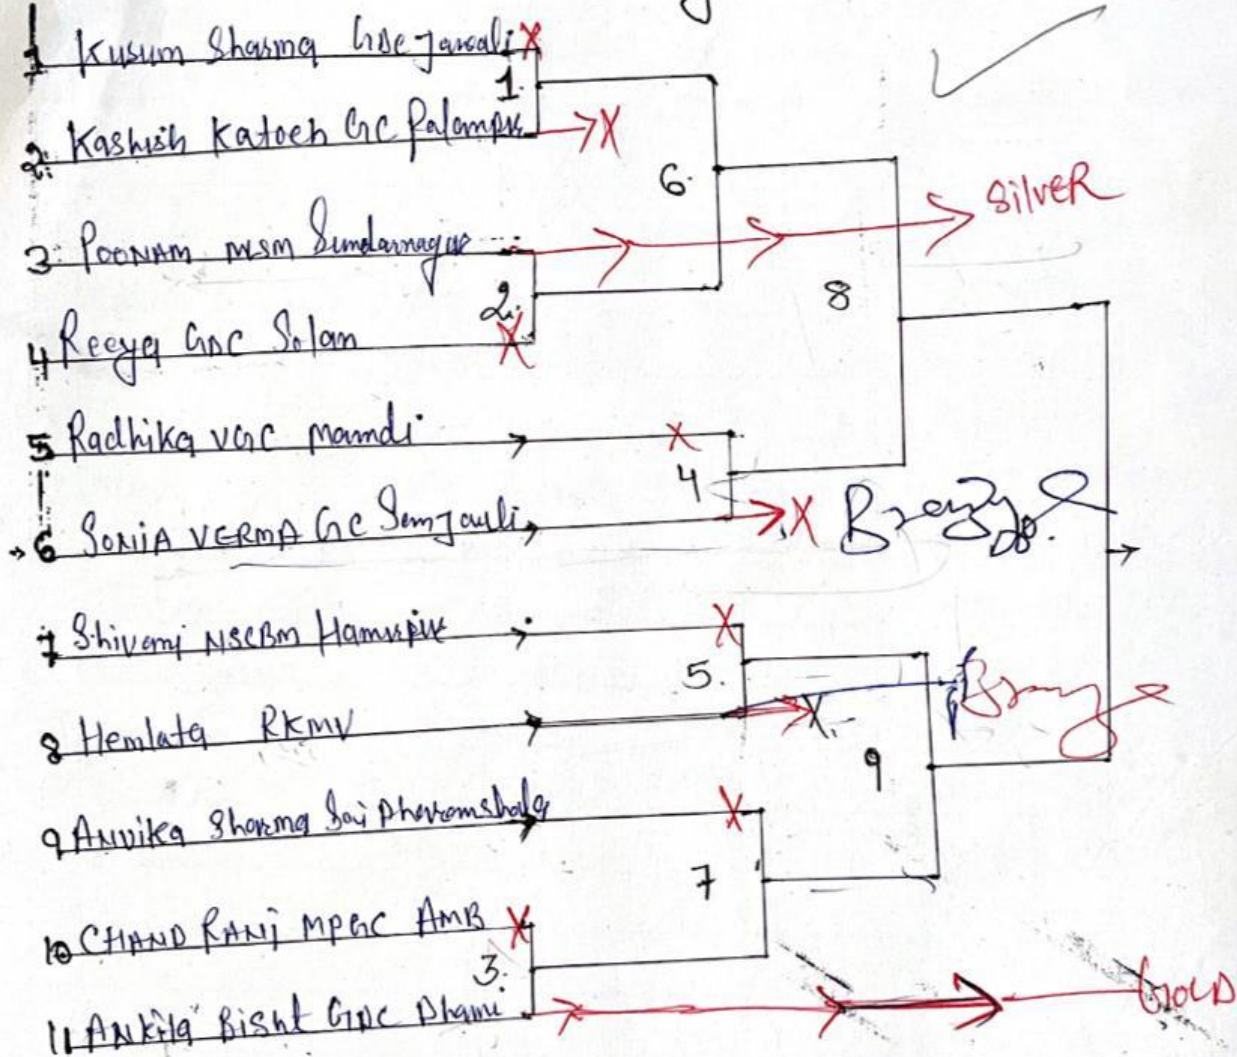 1 Kusum Sharma GDC Jawali X
1.
2. Kashish Katoch GC Palampur X
6.
SilveR
3. POONAM MLSM Sundarnagar
2.
8
4 Reeya GDC Solan X
5 Radhika VGC Mandi X
4
6 SONIA VERMA GC X Bronze
7 Shivani NSCBM Hamirpur X
5.
Bronze
8 Hemlata RKMV X
9
9 Anvika Sharma Sai Dharamshala X
7
10 CHAND RANI MPGC AMB X
3.
11 Ankita Bisht GDC Dhami GOLD